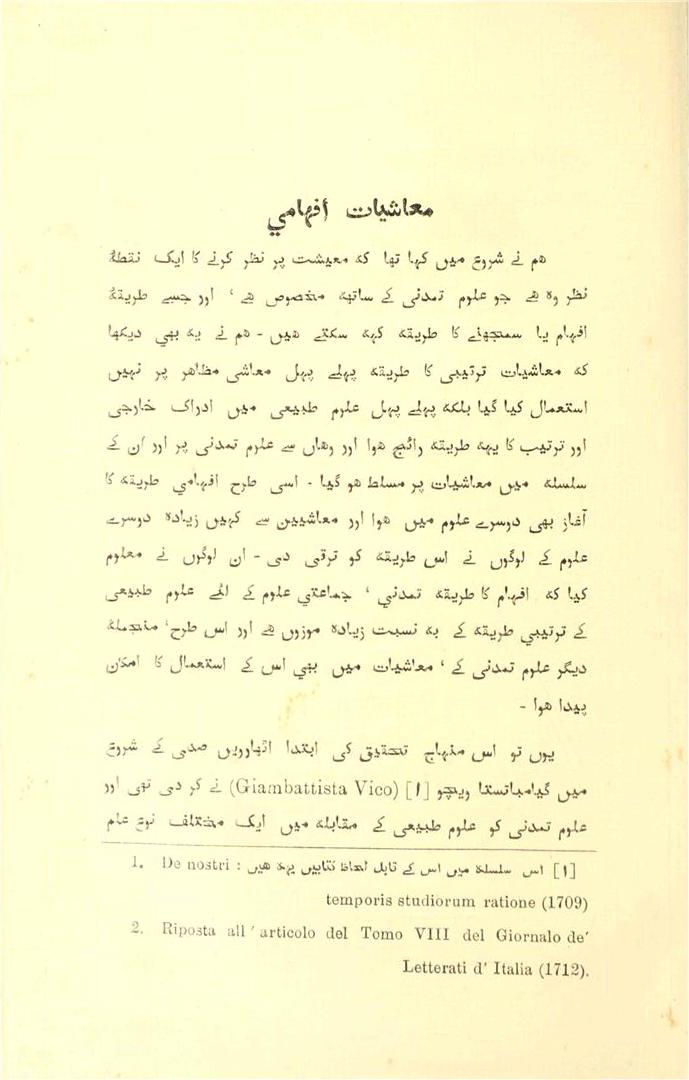 معاشیات افہامی
ہم نے شروع میں کہا تھا کہ معیشت پر نظر کرنے کا ایک نقطۂ
نظر وہ ہے جو علوم تمدنی کے ساتھ مخصوص ہے ، اور جسے طریقۂ
افہام یا سمجھنے کا طریقہ کہہ سکتے ہیں - ہم نے یہ بھی دیکھا
کہ معاشیات ترتیبی کا طریقہ پہلے پہل معاشی مظاہر پر نہیں
استعمال کیا گیا بلکہ پہلے پہل علوم طبیعی میں ادراک خارجی
اور ترتیب کا یہہ طریقہ رائج ہوا اور وہاں سے علوم تمدنی پر اور ان کے
سلسلہ میں معاشیات پر مسلط ہو گیا - اسی طرح افہامی طریقہ کا
آغاز بھی دوسرے علوم میں ہوا اور معاشیین سے کہیں زیادہ دوسرے
علوم کے لوگوں نے اس طریقہ کو ترقی دی - ان لوگوں نے معلوم
کیا کہ افہام کا طریقہ تمدنی ، جماعتی علوم کے لئے علوم طبیعی
کے ترتیبی طریقہ کے بہ نسبت زیادہ موزوں ہے اور اس طرح، منجملہ
دیگر علوم تمدنی کے ، معاشیات میں بھی اس کے استعمال کا امکان
پیدا ہوا -
یوں تو اس منہاج تحقیق کی ابتدا اٹھارویں صدی کے شروع
میں گیامباتستا ویچو [۱] (Giambattista Vico) نے کر دی تھی اور
علوم تمدنی کو علوم طبیعی کے مقابلہ میں ایک مختلف نوع عام
[۱] اس سلسلہ میں اس کے قابل لحاظ کتابیں یہہ ہیں : 1. De nostri
temporis studiorum ratione (1709)
2. Riposta all' articolo del Tomo VIII del Giornalo de'
Letterati d' Italia (1712).